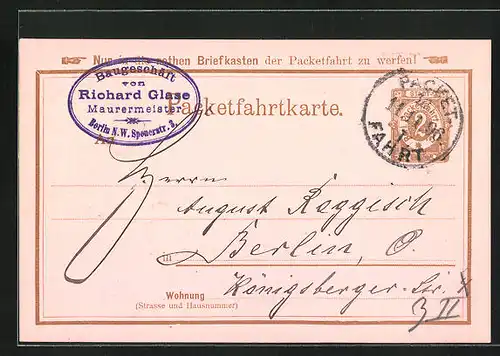 Nur in die rothen Briefkasten der Packetfahrt zu werfen!
Baugeschäft
von
Richard Glase
Maurermeister
Berlin N.W. Spenerstr. 3.
Packetfahrtkarte.
PACKET
FAHRT
2
An
Herrn
August Roggisch
in Berlin, O.
Wohnung Königsberger-Str.
(Strasse und Hausnummer)
3 II